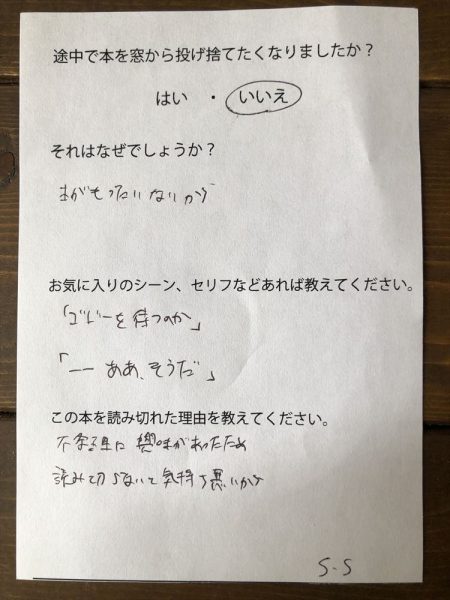 途中で本を窓から投げ捨てたくなりましたか？
はい ・ いいえ
それはなぜでしょうか？
まがもったいないから
お気に入りのシーン、セリフなどあれば教えてください。
「ゴドーを待つのか」
「―― ああ、そうだ」
この本を読み切れた理由を教えてください。
不条理に興味があったため
読み切らないと気持ち悪いから
S-S